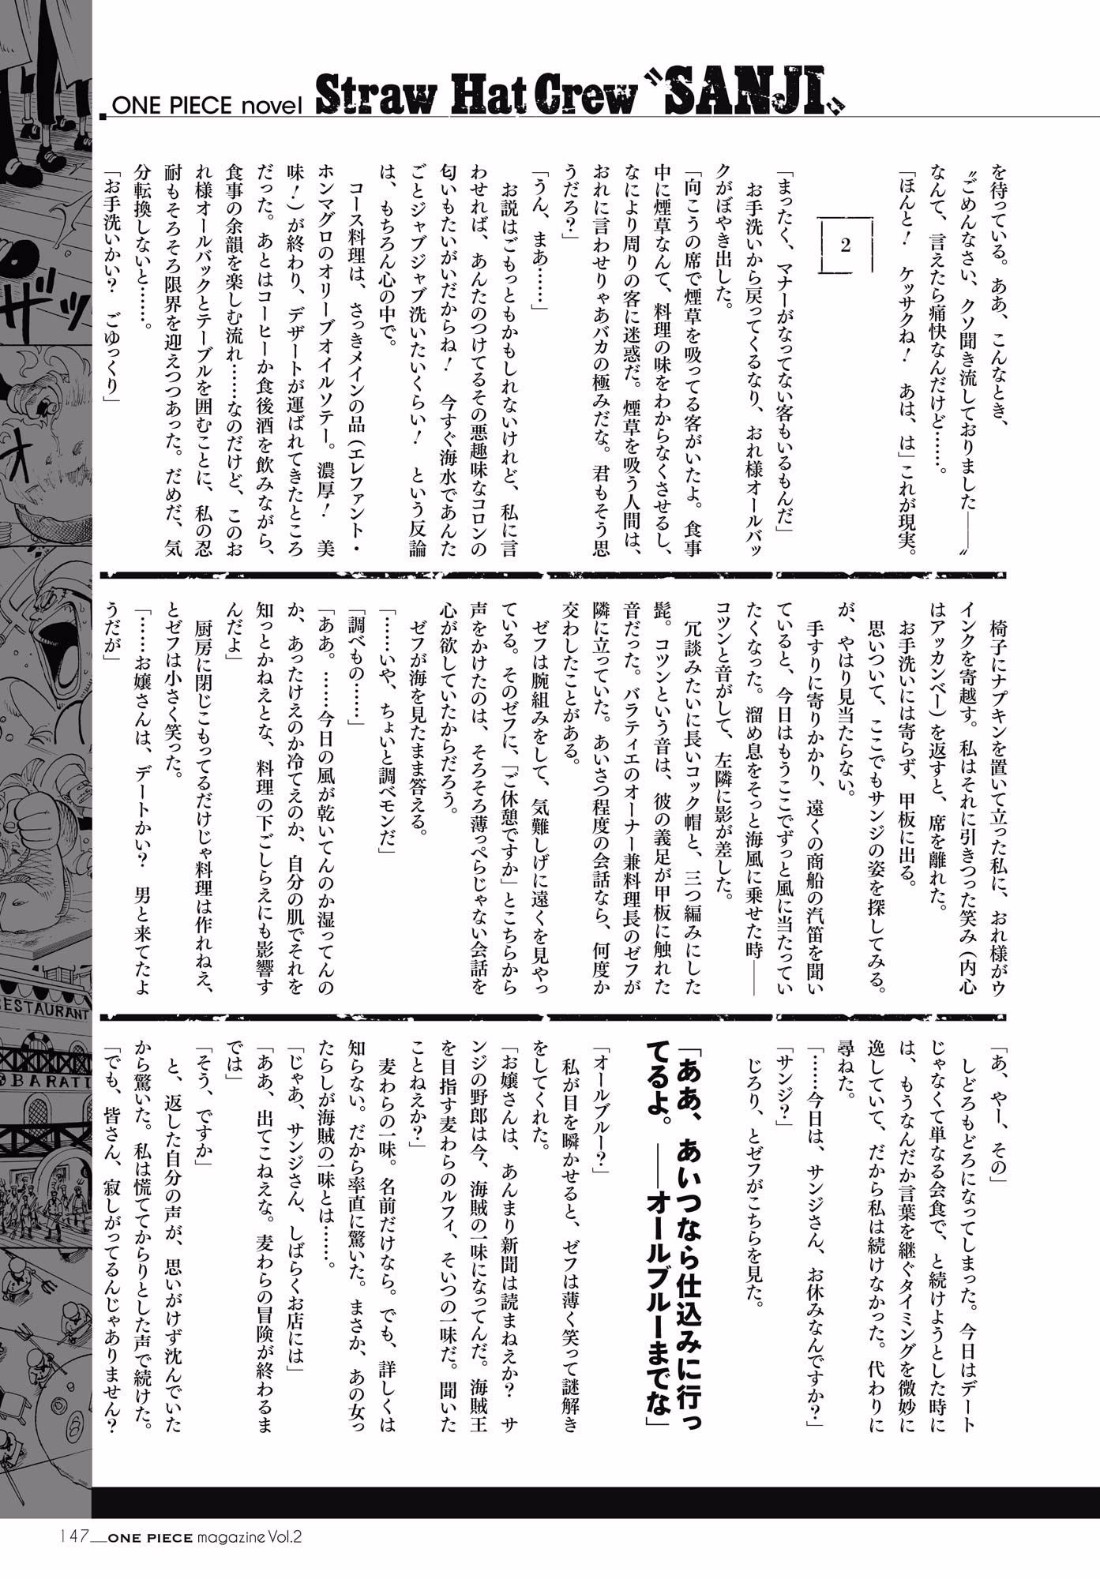 ONE PIECE novel Straw Hat Crew〝SANJI〟
を待っている。ああ、こんなとき、
〝ごめんなさい、クソ聞き流しておりました――〟
なんて、言えたら痛快なんだけど……。
「ほんと！　ケッサクね！　あは、は」これが現実。
2
「まったく、マナーがなってない客もいるもんだ」
お手洗いから戻ってくるなり、おれ様オールバッ
クがぼやき出した。
「向こうの席で煙草を吸ってる客がいたよ。食事
中に煙草なんて、料理の味をわからなくさせるし、
なにより周りの客に迷惑だ。煙草を吸う人間は、
おれに言わせりゃあバカの極みだな。君もそう思
うだろ？」
「うん、まあ……」
お説はごもっともかもしれないけれど、私に言
わせれば、あんたのつけてるその悪趣味なコロンの
匂いもたいがいだからね！　今すぐ海水であんた
ごとジャブジャブ洗いたいくらい！　という反論
は、もちろん心の中で。
コース料理は、さっきメインの品（エレファント・
ホンマグロのオリーブオイルソテー。濃厚！　美
味！）が終わり、デザートが運ばれてきたところ
だった。あとはコーヒーか食後酒を飲みながら、
食事の余韻を楽しむ流れ……なのだけど、このお
れ様オールバックとテーブルを囲むことに、私の忍
耐もそろそろ限界を迎えつつあった。だめだ、気
分転換しないと……。
「お手洗いかい？　ごゆっくり」
椅子にナプキンを置いて立った私に、おれ様がウ
インクを寄越す。私はそれに引きつった笑み（内心
はアッカンベー）を返すと、席を離れた。
お手洗いには寄らず、甲板に出る。
思いついて、ここでもサンジの姿を探してみる。
が、やはり見当たらない。
手すりに寄りかかり、遠くの商船の汽笛を聞い
ていると、今日はもうここでずっと風に当たってい
たくなった。溜め息をそっと海風に乗せた時――
コツンと音がして、左隣に影が差した。
冗談みたいに長いコック帽と、三つ編みにした
髭。コツンという音は、彼の義足が甲板に触れた
音だった。バラティエのオーナー兼料理長のゼフが
隣に立っていた。あいさつ程度の会話なら、何度か
交わしたことがある。
ゼフは腕組みをして、気難しげに遠くを見やっ
ている。そのゼフに、「ご休憩ですか」とこちらから
声をかけたのは、そろそろ薄っぺらじゃない会話を
心が欲していたからだろう。
ゼフが海を見たまま答える。
「……いや、ちょいと調べモンだ」
「調べもの……」
「ああ。……今日の風が乾いてんのか湿ってんの
か、あったけえのか冷てえのか、自分の肌でそれを
知っとかねえとな、料理の下ごしらえにも影響す
んだよ」
厨房に閉じこもってるだけじゃ料理は作れねえ、
とゼフは小さく笑った。
「……お嬢さんは、デートかい？　男と来てたよ
うだが」
「あ、やー、その」
しどろもどろになってしまった。今日はデート
じゃなくて単なる会食で、と続けようとした時に
は、もうなんだか言葉を継ぐタイミングを微妙に
逸していて、だから私は続けなかった。代わりに
尋ねた。
「……今日は、サンジさん、お休みなんですか？」
「サンジ？」
じろり、とゼフがこちらを見た。
「ああ、あいつなら仕込みに行っ
てるよ。――オールブルーまでな」
「オールブルー？」
私が目を瞬かせると、ゼフは薄く笑って謎解き
をしてくれた。
「お嬢さんは、あんまり新聞は読まねえか？　サ
ンジの野郎は今、海賊の一味になってんだ。海賊王
を目指す麦わらのルフィ、そいつの一味だ。聞いた
ことねえか？」
麦わらの一味。名前だけなら。でも、詳しくは
知らない。だから率直に驚いた。まさか、あの女っ
たらしが海賊の一味とは……。
「じゃあ、サンジさん、しばらくお店には」
「ああ、出てこねえな。麦わらの冒険が終わるま
では」
「そう、ですか」
と、返した自分の声が、思いがけず沈んでいた
から驚いた。私は慌ててからりとした声で続けた。
「でも、皆さん、寂しがってるんじゃありません？
ザッ
オ
RESTAURANT
BARATI
147__ONE PIECE magazine Vol.2